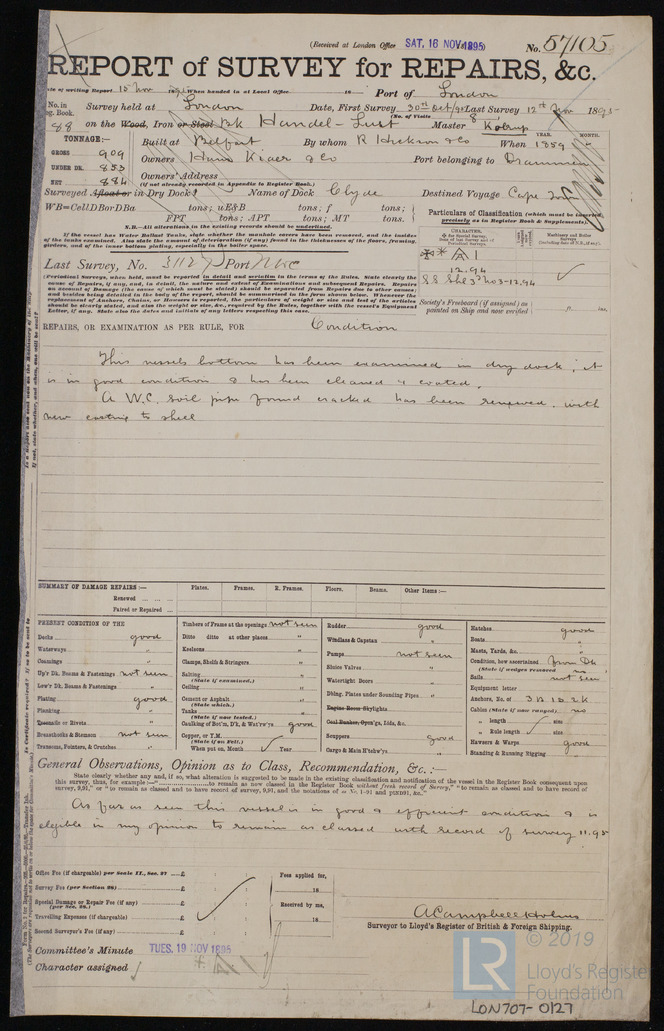 (Received at London Office SAT. 16 NOV 1895)
No. 57105
REPORT of SURVEY for REPAIRS, &c.
Date of writing Report 15 Nov 189 When handed in at Local Office 18 Port of London
No. in Reg. Book. Survey held at London Date, First Survey 30th Oct /95 Last Survey 12th Nov 1895
(No. of Visits 8)
88 on the Wood, Iron or Steel Bk Handel-Lust Master
TONNAGE:— YEAR. MONTH.
GROSS 909 Built at Belfast By whom R Hickson & Co When 1859
UNDER DK. 853 Owners Hans Kiaer & Co Port belonging to Drammen
NET 884 Owners' Address
(if not already recorded in Appendix to Register Book.)
Surveyed Afloat or in Dry Dock? Name of Dock Clyde Destined Voyage Cape Town
WB=CellDBorDBa tons; uE&B tons; f tons;
FPT tons; APT tons; MT tons.
Particulars of Classification (which must be inserted precisely as in Register Book & Supplements).
N.B.—All alterations in the existing records should be underlined.
If the vessel has Water Ballast Tanks, state whether the manhole covers have been removed, and the insides
of the tanks examined. Also state the amount of deterioration (if any) found in the thicknesses of the floors, framing,
girders, and of the inner bottom plating, especially in the boiler space.
CHARACTER.
A 1
12.94
Last Survey, No. Port
(Periodical Surveys, when held, must be reported in detail and seriatim in the terms of the Rules. State clearly the
name of Repairs, if any, and, in detail, the nature and extent of Examinations and subsequent Repairs. Repairs
on account of Damage (the cause of which must be stated) should be separated from Repairs due to other causes;
and besides being detailed in the body of the report, should be summarised in the form shewn below. Whenever the
replacement of Anchors, Chains, or Hawsers is reported, the particulars of weight or size and test of the articles
should be clearly stated, and also the weight or size, &c., required by the Rules, together with the vessel's Equipment
Letter, if any. State also the dates and initials of any letters respecting this case.
S.S. Shl 3 No 3-12.94
Society's Freeboard (if assigned) as painted on Ship and now verified ft. ins.
REPAIRS, OR EXAMINATION AS PER RULE, FOR Condition
This vessels bottom has been examined in dry dock; it
is in good condition & has been cleaned & coated.
A W.C. soil pipe found cracked has been renewed with
new casting to shell
SUMMARY OF DAMAGE REPAIRS:— Plates. Frames. R. Frames. Floors. Beams. Other Items:—
Renewed
Paired or Repaired
PRESENT CONDITION OF THE
Decks good
Waterways "
Coamings "
Up'r Dk. Beams & Fastenings not seen
Low'r Dk. Beams & Fastenings "
Plating good
Planking
Treenails or Rivets "
Breasthooks & Stemson not seen
Transoms, Pointers, & Crutches "
Timbers of Frame at the openings not seen
Ditto ditto at other places "
Keelsons "
Clamps, Shelfs & Stringers "
Salting (State if examined.) "
Ceiling "
Cement or Asphalt (State which.) "
Tanks (State if now tested.)
Caulking of Bot'm, D'k, & Wat'rw'ys good
Copper, or Y.M. (State if on Felt.)
When put on, Month Year
Rudder good
Windlass & Capstan "
Pumps not seen
Sluice Valves "
Watertight Doors "
Dblng. Plates under Sounding Pipes "
Engine Room Skylights
Coal Bunker, Open'gs, Lids, &c.
Scuppers good
Cargo & Main H'tchw'ys "
Hatches good
Boats "
Masts, Yards, &c. "
Condition, how ascertained from Dk
(State if wedges removed) no
Sails not seen
Equipment letter
Anchors, No. of 3B 1S 2K
Cables (State if now ranged) no
" length size
" Rule length size
Hawsers & Warps good
Standing & Running Rigging "
General Observations, Opinion as to Class, Recommendation, &c. :—
State clearly whether any, and if so, what alteration is suggested to be made in the existing classification and notification of the vessel in the Register Book consequent upon
this survey, thus, for example:—" to remain as now classed in the Register Book without fresh record of Survey," "to remain as classed and to have record of
survey, 9,91," or "to remain as classed and to have record of survey, 9,91, and the notations of
As far as seen this vessel is in good & efficient condition & is
eligible in my opinion to remain as classed with record of survey 11.95
Office Fee (if chargeable) per Scale II., Sec. 27 £
Survey Fee (per Section 28) £
Special Damage or Repair Fee (if any) (per Sec. 28.) £
Travelling Expenses (if chargeable) £
Second Surveyor's Fee (if any) £
Fees applied for,
18
Received by me,
18
A Campbell Holms
Surveyor to Lloyd's Register of British & Foreign Shipping.
Committee's Minute TUES. 19 NOV 1895
Character assigned
© 2019
LR
Lloyd's Register
Foundation
LON707-0127